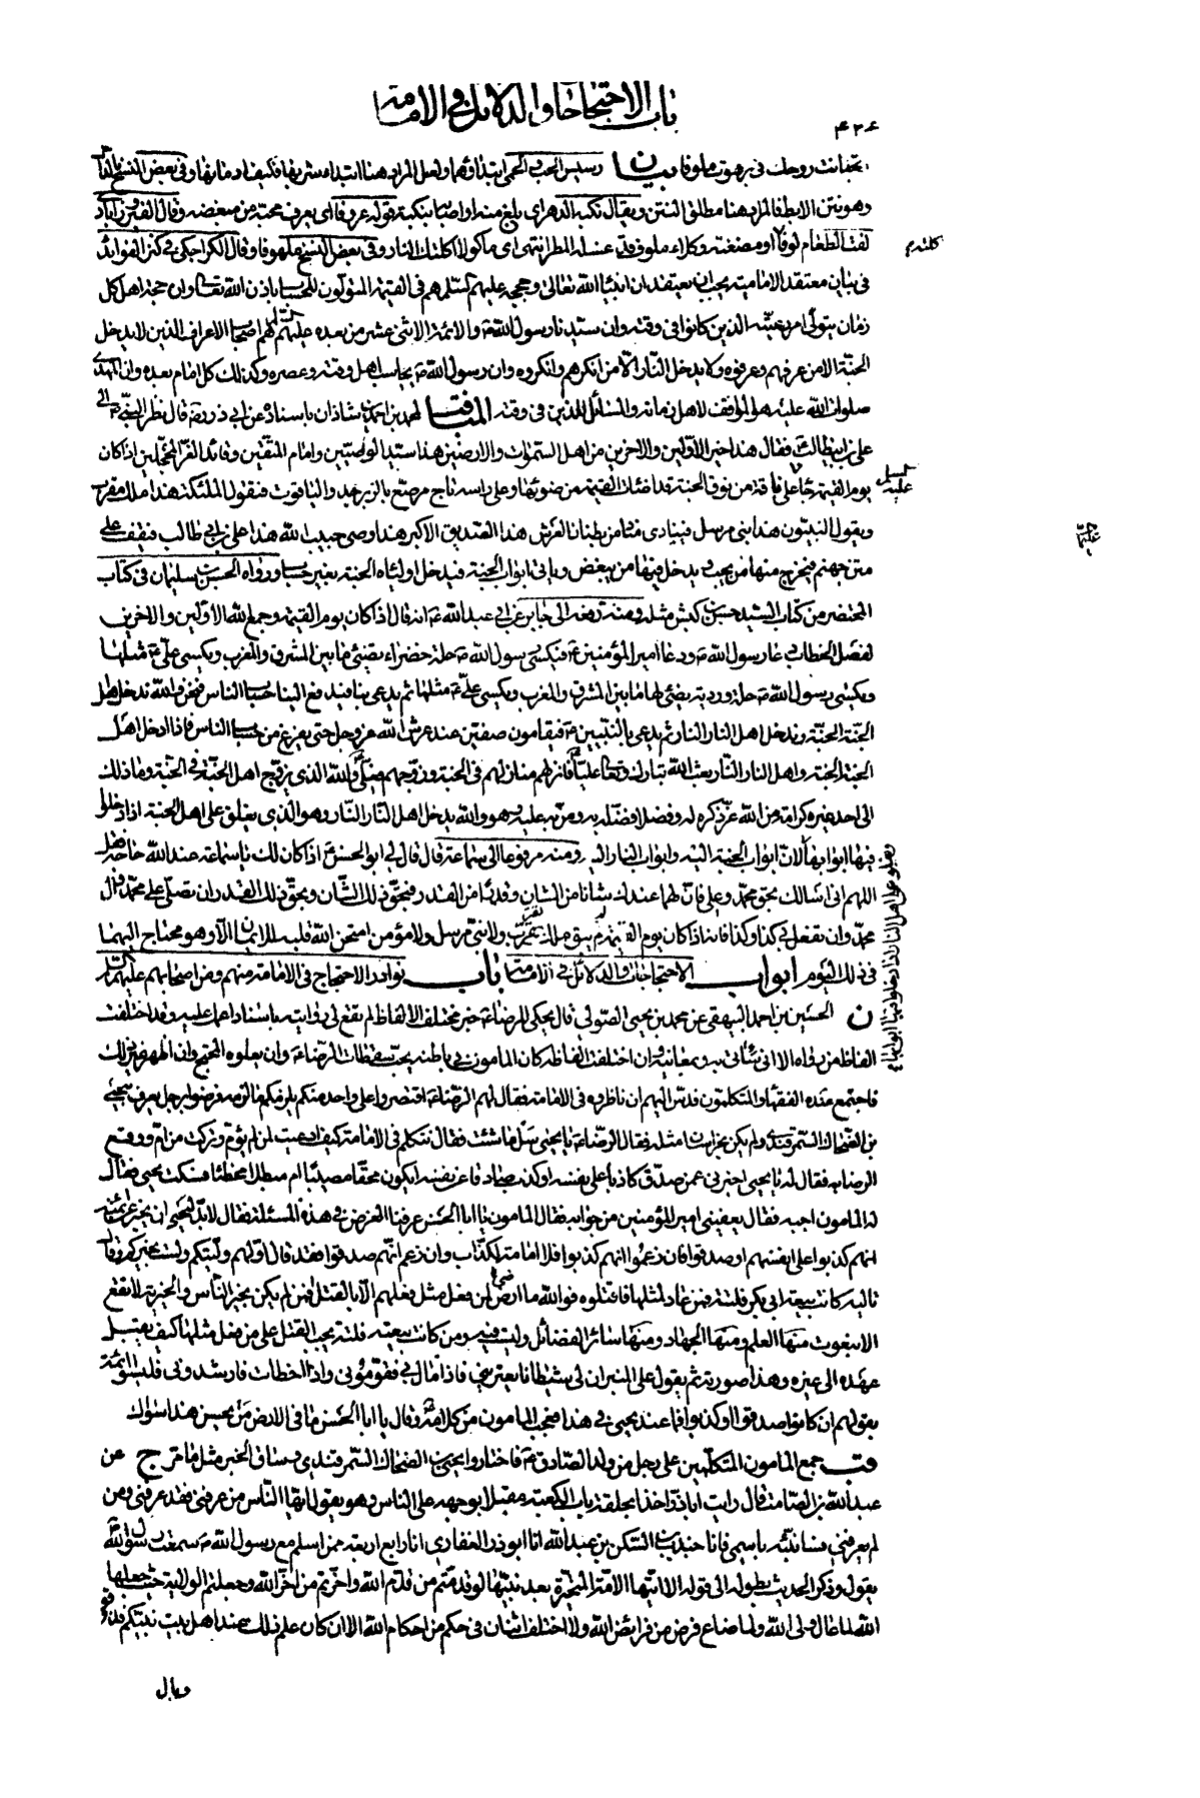 باب الاحتجاجات والدلائل فى الامامة
٤٣٤
بيان رسيس الحب والحمى ابتداؤهما ولعل المراد هنا ابتداء شر بقا وفى بعض النسخ
وهو نتن الابط فالمراد هنا مطلق النتن ويقال نكبه الدهر اى بلغ منه او اصابه بنكبة قوله عروفا اى يعرف محبه من مبغضه وقال الفيروزآبادى
وفى بعض النسخ ملهوفا وقال الكراجكى فى كنز الفوائد
كلته م
فى بيان معتقد الامامية يجب ان يعتقد ان انبياء الله تعالى وحججه عليهم السلم هم فى القيمة المتولون للحساب باذن الله تعالى وان حجة اهل كل
زمان يتولى امر رعيته الذين كانوا فى وقته وان سيدنا رسول الله ص والائمة الاثنى عشر من بعده عليهم السلم هم اصحاب الاعراف الذين لا يدخل
الجنة الا من عرفهم وعرفوه ولا يدخل النار الا من انكرهم وانكروه وان رسول الله ص يحاسب اهل وقته وعصره وكذلك كل امام بعده وان المهدى
صلوات الله عليه هو المواقف لاهل زمانه والمسائل للذين فى وقته المناقب لمحمد بن احمد بن شاذان باسناده عن ابى ذر ره قال نظر النبى ص الى
على بن ابيطالب فقال هذا خير الاولين والاخرين من اهل السموات والارضين هذا سيد الوصيين وامام المتقين وقائد الغر المحجلين اذا كان
يوم القيمة جاء على ناقة من نوق الجنة قد اضائت القيمة من ضوئها وعلى راسه تاج مرصع بالزبرجد والياقوت فتقول الملئكة هذا ملك مقرب
ويقول النبيون هذا نبى مرسل فينادى مناد من بطنان العرش هذا الصديق الاكبر هذا وصى حبيب الله هذا على بن ابى طالب فيقف على
متن جهنم فيخرج منها من يحب ويدخل فيها من يبغض وياتى ابواب الجنة فيدخل اوليائه الجنة بغير حساب ورواه الحسن بن سليمان فى كتاب
المحتضر من كتاب السيد حسن بن كبش مثله ومنه رفعه الى جابر عن ابى عبد الله ع انه قال اذا كان يوم القيمة وجمع الله الاولين والاخرين
لفصل الخطاب دعا رسول الله ص ودعا امير المؤمنين ع فيكسى رسول الله ص حلة خضراء يضيئ ما بين المشرق والمغرب ويكسى على ع مثلها
ويكسى رسول الله ص حلة وردية يضئ لها ما بين المشرق والمغرب ويكسى على ع مثلها ثم يدعى بنا فيدفع الينا حساب الناس فنحن والله ندخل اهل
الجنة الجنة وندخل اهل النار النار ثم يدعى بالنبيين ع فيقامون صفين عند عرش الله عز وجل حتى يفرغ من حساب الناس فاذا دخل اهل
الجنة الجنة واهل النار النار بعث الله تبارك وتعالى عليا فانزلهم منازلهم فى الجنة وزوجهم فعلى والله الذى يزوج اهل الجنة فى الجنة وما ذلك
الى احد غيره كرامة من الله عز ذكره له وفضلا فضله به ومن به عليه وهو والله يدخل اهل النار النار وهو الذى يغلق على اهل الجنة اذا دخلوا
فيها ابوابها لان ابواب الجنة اليه وابواب النار اليه ومنه مرفوعا الى سماعة قال قال لى ابو الحسن ع اذا كان لك يا سماعة عند الله حاجة فقل
اللهم انى اسالك بحق محمد وعلى فان لهما عندك شانا من الشان وقدرا من القدر فبحق ذلك الشان وبحق ذلك القدر ان تصلى على محمد وآل
محمد وان تفعل بى كذا وكذا فانه اذا كان يوم القيمة لم يبق ملك مقرب ولا نبى مرسل ولا مؤمن امتحن الله قلبه للايمان الا وهو محتاج اليهما
فى ذلك اليوم ابواب الاحتجاجات والدلائل فى الامامة باب نوادر الاحتجاج فى الامامة منهم ومن اصحابهم عليهم السلم
ن الحسين بن احمد البيهقى عن محمد بن يحيى الصولى قال يحكى للرضا ع خبر مختلف الالفاظ لم تقع لى روايته باسناد اعمل عليه وقد اختلفت
الفاظ من رواه الا انى سآتى به وبمعانيه وان اختلفت الفاظه كان المامون فى باطنه يحب سقطات الرضا ع وان يعلوه المحتج وان اظهر غير ذلك
فاجتمع عنده الفقهاء والمتكلمون فدس اليهم ان ناظروه فى الامامة فقال لهم الرضا ع اقتصروا على واحد منكم يلزمكم ما لزمه فرضوا برجل يعرف بيحيى
بن الضحاك السمرقندى ولم يكن بخراسان مثله فقال الرضا ع يا يحيى سل ما شئت فقال نتكلم فى الامامة كيف ادعيت لمن لم يؤم وتركت من ام ووقع
الرضا به فقال له يا يحيى اخبرنى عمن صدق كاذبا على نفسه او كذب صادقا عن نفسه ايكون محقا مصيبا ام مبطلا مخطئا فسكت يحيى فقال
له المامون اجبه فقال يعفينى امير المؤمنين من جوابه فقال المامون يا ابا الحسن عرفنا الغرض فى هذه المسئلة فقال لا بد ليحيى ان يخبر عن ائمته
انهم كذبوا على انفسهم او صدقوا فان زعموا انهم كذبوا فلا امامة لكذاب وان زعم انهم صدقوا فقد قال اولهم وليتكم ولست بخيركم وقال
تاليه كانت بيعة ابى بكر فلتة فمن عاد لمثلها فاقتلوه فوالله ما رضى لمن فعل مثل فعلهم الا بالقتل فمن لم يكن بخير الناس والخيرية لا تقع
الا بنعوت منها العلم ومنها الجهاد ومنها سائر الفضائل وليست فيه ومن كانت بيعته فلتة يجب القتل على من فعل مثلها كيف يقبل
عهده الى غيره وهذا صورته ثم يقول على المنبر ان لى شيطانا يعترينى فاذا مال بى فقومونى واذا اخطات فارشدونى فليسوا ائمة
بقولهم ان كانوا صدقوا او كذبوا فما عند يحيى فى هذا فعجب المامون من كلامه وقال يا ابا الحسن ما فى الارض من يحسن هذا سواك
قب جمع المامون المتكلمين على رجل من ولد الصادق ع فاختاروا يحيى بن الضحاك السمرقندى وساق الخبر مثل ما مر ج عن
عبد الله بن الصامت قال رايت اباذر اخذا بحلقة باب الكعبة مقبلا بوجهه على الناس وهو يقول ايها الناس من عرفنى فقد عرفنى ومن
لم يعرفنى فسانبئه باسمى فانا جندب بن السكن بن عبد الله انا ابوذر الغفارى انا رابع اربعة ممن اسلم مع رسول الله ص سمعت رسول الله
يقول وذكر الحديث بطوله الى قوله الا ايتها الامة المتحيرة بعد نبيها لو قدمتم من قدم الله واخرتم من اخر الله وجعلتم الولاية حيث جعلها
الله لما عال ولى الله ولما ضاع فرض من فرائض الله ولا اختلف اثنان فى حكم من احكام الله الا ان كان علم ذلك عند اهل بيت نبيكم فذوقوا
وبال